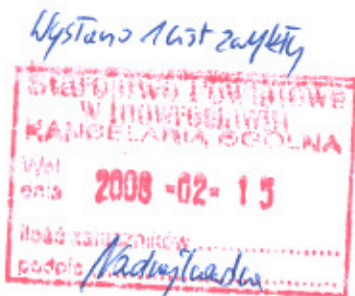 Wysłano 1 list zwykły
Starostwo Powiatowe
w Inowrocławiu
KANCELARIA OGÓLNA
Wpł.
dnia 2008 -02- 15
ilość załączników
podpis